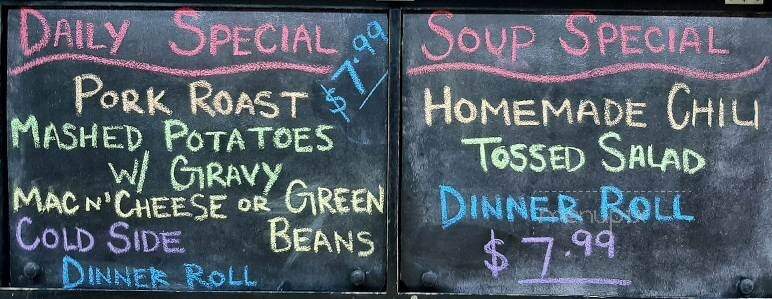 DAILY SPECIAL
$7.99
PORK ROAST
MASHED POTATOES
W/ GRAVY
MAC N' CHEESE OR GREEN
COLD SIDE BEANS
DINNER ROLL
SOUP SPECIAL
HOMEMADE CHILI
TOSSED SALAD
DINNER ROLL
$7.99